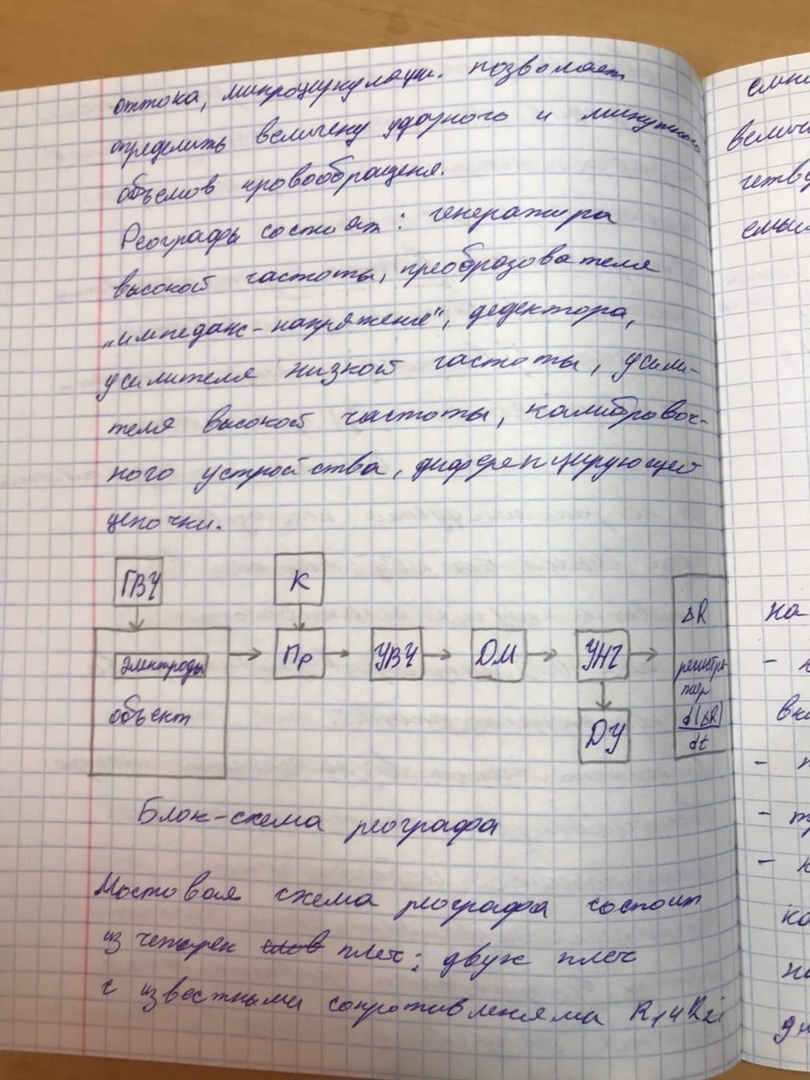 оттока, микроциркуляции. позволяет
определить величену ударного и минутного
объемов кровообращеня.
Реографы состоят: генератора
высокой частоты, преобразователя
„импеданс-напряжение", дедектора,
усилителя низкой частоты, усили-
теля высокой частоты, калибровоч-
ного устройства, диференцирующей
цепочки.
ГВЧ К
Электроды Пр УВЧ ДМ УНЧ
объект
ДУ
ΔR
регистра-
тор
d(ΔR)
dt
Блок-схема реографа
Мостовая схема реографа состоит
из четырех плеч: двух плеч
с известными сопротивленяма R1 и R2;
емы
на
-
-
-
на